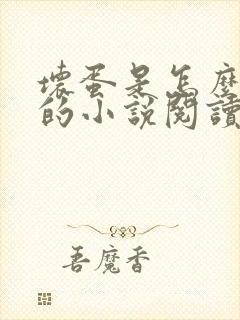 壞蛋是怎麼
的小說閱讀
吾魔香